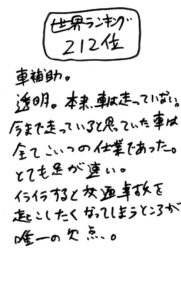 世界ランキング
212位
車補助。
透明。本来、車は走っていない。
今まで走っていると思っていた車は
全てこいつの仕業であった。
とても足が速い。
イライラすると交通事故を
起こしたくなってしまうところが
唯一の欠点、。